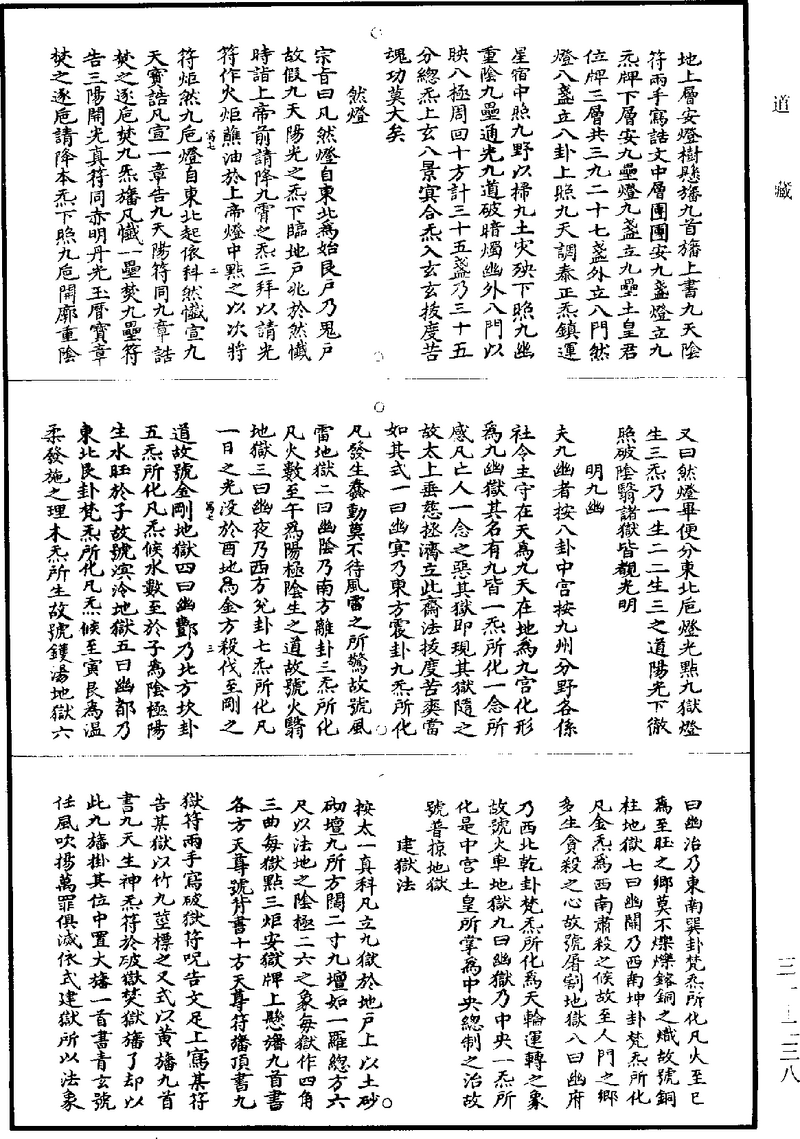 道藏
三一—二三八
地上層安燈樹懸旛九首旛上書九天陰
符兩手寫誥文中層團團安九盞燈立九
炁牌下層安九壘燈九盞立九壘土皇君
位牌三層共三九二十七盞外立八門然
燈八盞立八卦上照九天調泰正炁鎮運
星宿中照九野以掃九土灾殃下照九幽
重陰九壘通光九道破暗燭幽外八門以
映八極周回十方計三十五盞乃三十五
分緫炁上玄八景冥合炁入玄玄拔度苦
魂功莫大矣
然燈
宗旨曰凡然燈自東北爲始艮戶乃鬼戶
故假九天陽光之炁下臨地戶兆於然懺
時詣上帝前請降九霄之炁三拜以請光
符作火炬蘸油於上帝燈中點之以次將
符炬然九巵燈自東北起依科然懺宣九
天寶誥凡宣一章告九天陽符同九章誥
焚之逐巵焚九炁旛凡懺一壘焚九壘符
告三陽開光真符同赤明丹光玉曆寶章
焚之逐巵請降本炁下照九巵開廓重陰
又曰然燈畢便分東北巵燈光點九獄燈
生三炁乃一生二二生三之道陽光下徹
照破陰翳諸獄皆觀光明
明九幽
夫九幽者按八卦中宫按九州分野各係
社令主守在天爲九天在地爲九宫化形
爲九幽獄其名有九皆一炁所化一念所
感凡亡人一念之惡其獄即現其獄隨之
故太上垂慈拯濟立此齋法拔度苦爽當
如其式一曰幽冥乃東方震卦九炁所化
凡發生蠢動莫不待風雷之所驚故號風
雷地獄二曰幽陰乃南方離卦三炁所化
凡火數至午爲陽極陰生之道故號火翳
地獄三曰幽夜乃西方兊卦七炁所化凡
一日之光没於酉地爲金方殺伐至剛之
道故號金剛地獄四曰幽酆乃北方坎卦
五炁所化凡炁候水數至於子爲陰極陽
生水旺於子故號溟泠地獄五曰幽都乃
東北艮卦梵炁所化凡炁候至寅艮爲溫
柔發施之理木炁所生故號鑊湯地獄六
曰幽治乃東南巽卦梵炁所化凡火至巳
爲至旺之鄉莫不爍爍鎔銅之熾故號銅
柱地獄七曰幽關乃西南坤卦梵炁所化
凡金炁爲西南肅殺之候故至人門之鄉
多生貪殺之心故號屠割地獄八曰幽府
乃西北乾卦梵炁所化爲天輪運轉之象
故號火車地獄九曰幽獄乃中央一炁所
化是中宫土皇所掌爲中央緫制之治故
號普掠地獄
建獄法
按太一真科凡立九獄於地戶上以土砂
砌壇九所方闊二寸九壇如一羅緫方六
尺以法地之陰極二六之象每獄作四角
三曲每獄點三炬安獄牌上懸旛九首書
各方天尊號背書十方天尊符旛頂書九
獄符兩手寫破獄符呪告文足上寫某符
告某獄以竹九莖標之又式以黄旛九首
書九天生神炁符於破獄焚獄旛了却以
此九旛掛其位中置大旛一首書青玄號
任風吹揚萬罪俱滅依式建獄所以法象